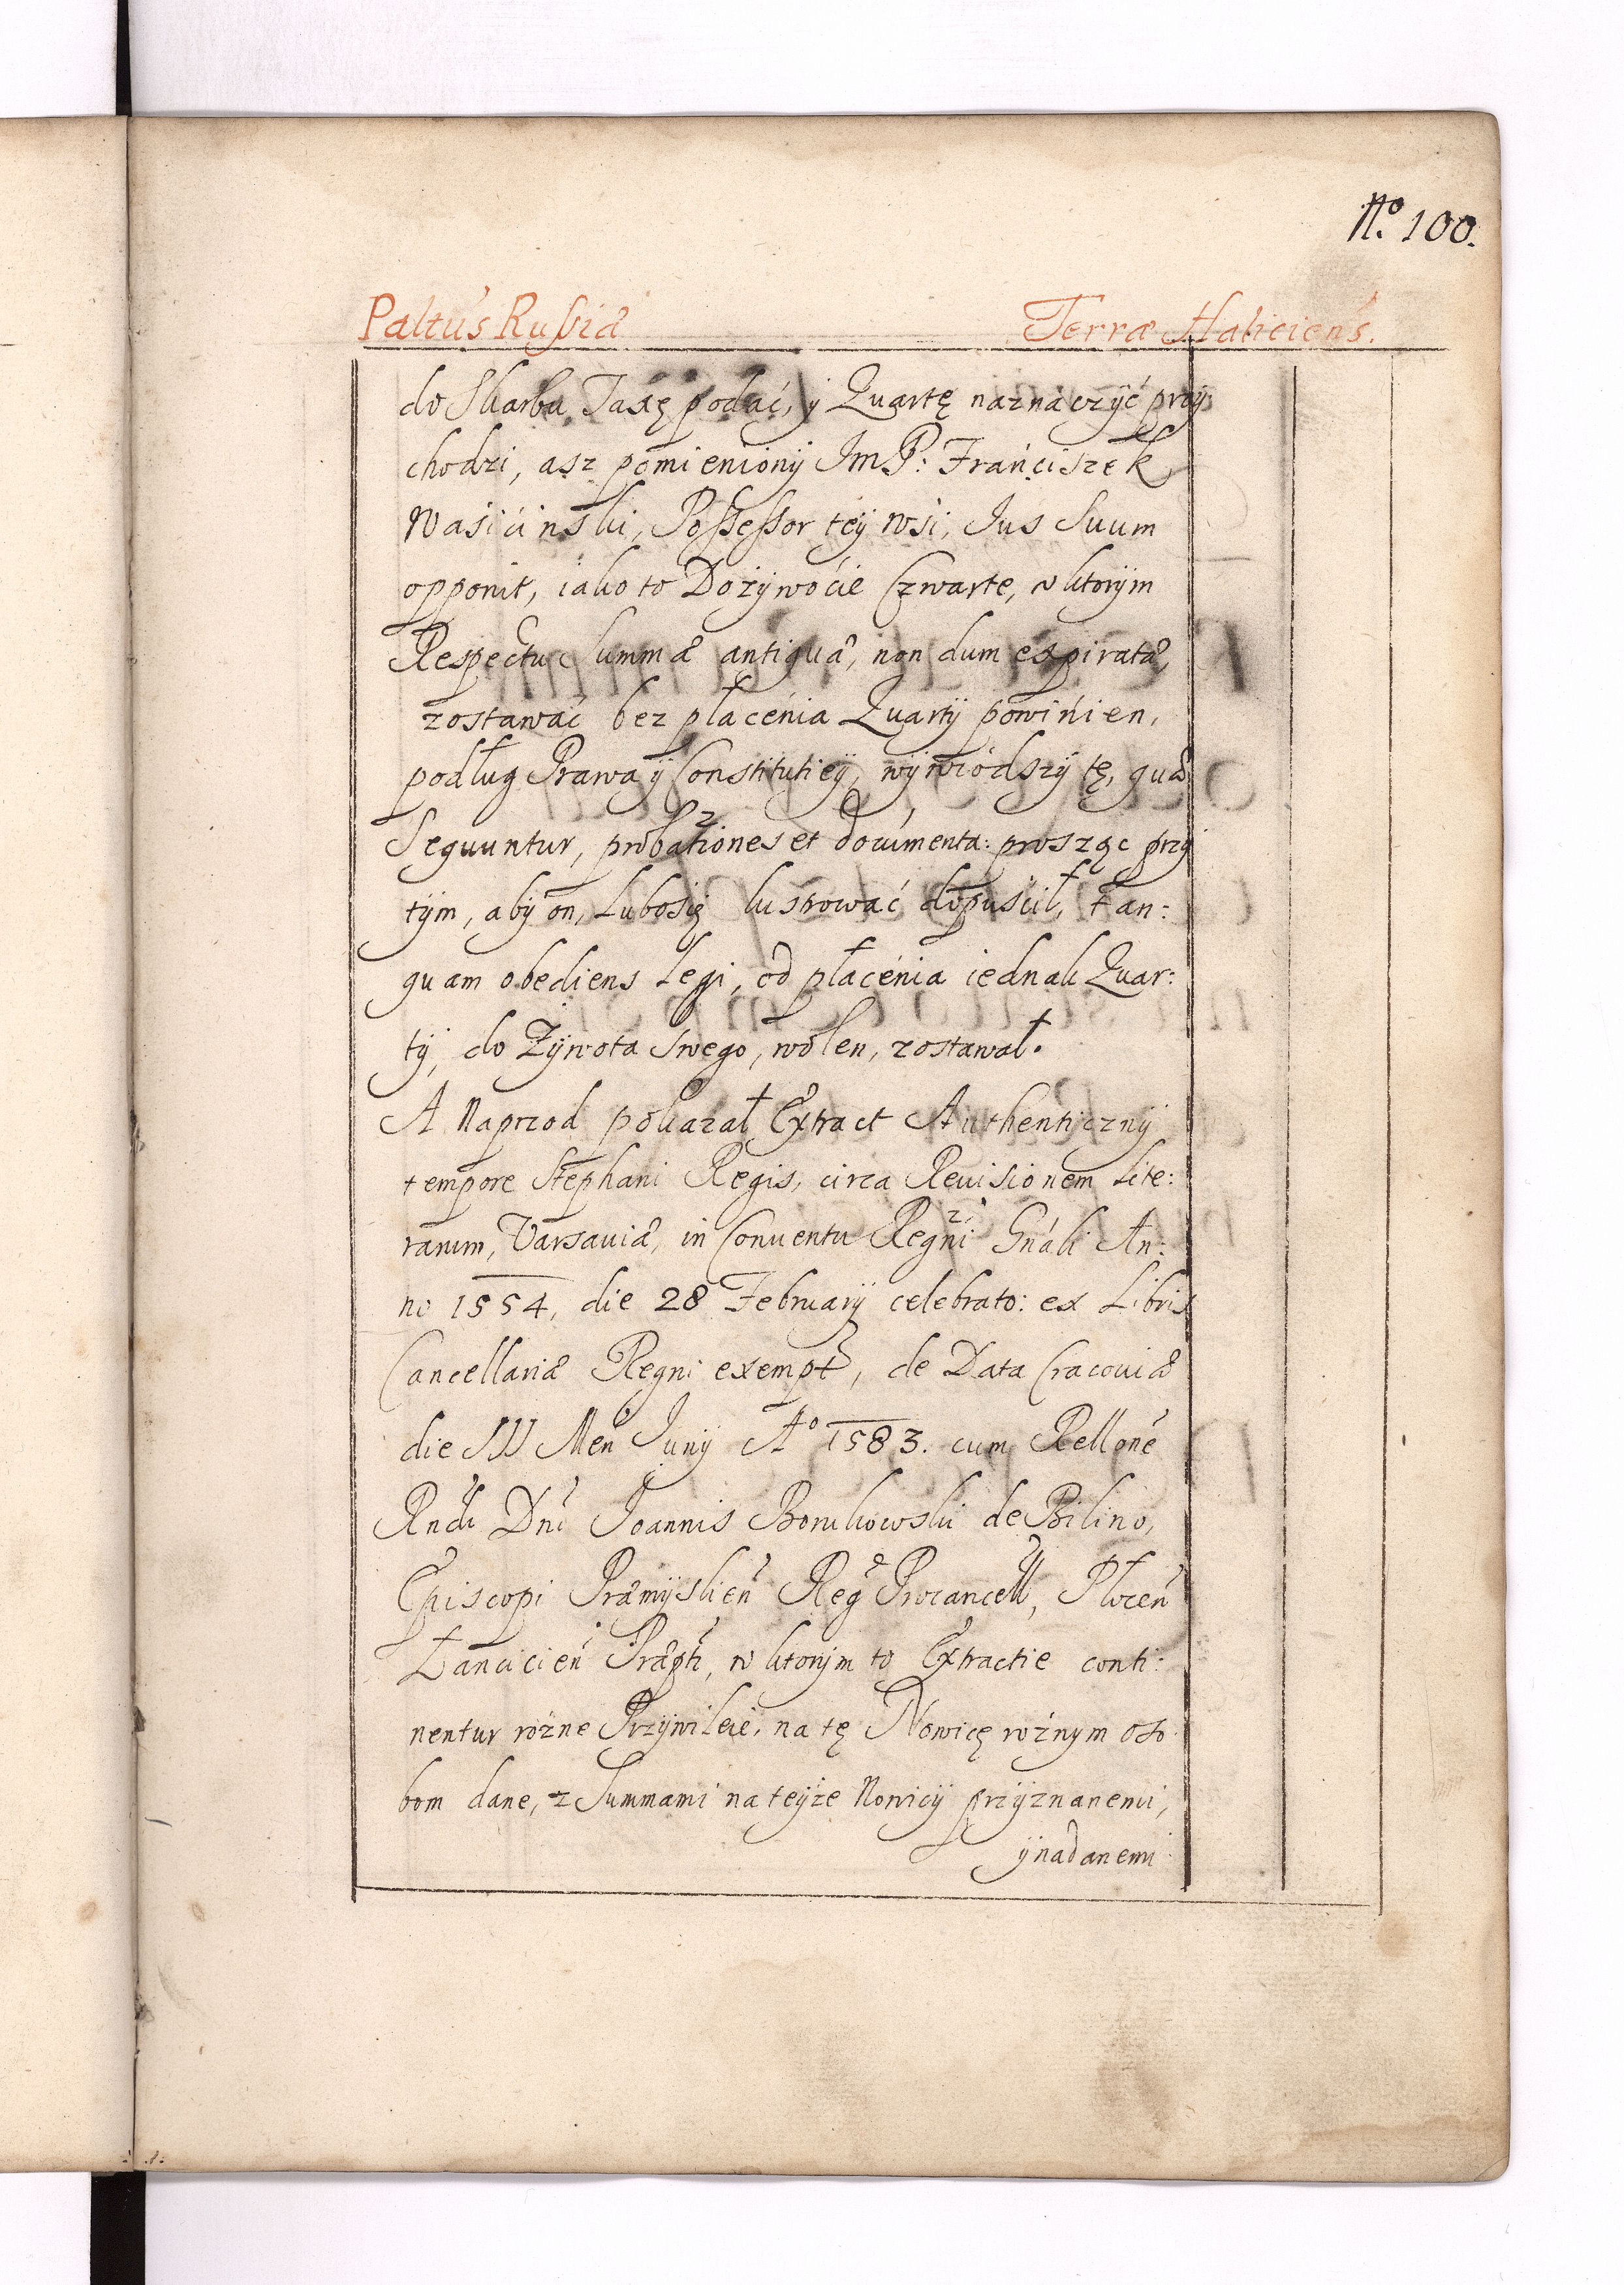 No. 100.
Paltus Russiæ Terræ Haliciens.
do Skarbu Taxę podać, y Quartę naznaczyć przy:
chodzi, asz pomieniony ImP: Franciszek
Wasicinski, Possessor tey wsi, Jus Suum
opponit, iako to Dożywocie Czwarte, w ktorym
Respectu Summæ antiquæ, non dum expiratæ,
zostawać bez płacenia Quarty powinien,
podług Prawa y Constitutiey, wywiodszy te, quæ
Sequuntur, probationes et documenta: prosząc przy
tym, aby on, Lubosię lustrować dopuscił, tan:
quam obediens Legi, od płacenia iednak Quar:
ty, do Zywota Swego, wolen, zostawał.
A Naprzod pokazał Extract Authenticzny
tempore Stephani Regis, circa Reuisionem Lite:
rarum, Varsauiæ, in Conuentu Regni Gnáli An:
no 1554, die 28 February celebrato: ex Libris
Cancellariæ Regni exempt, de Data Cracouiæ
die III Men Juny Ao 1583. cum Rellone
Rndi Dni Joannis Borukowski de Bilino,
Episcopi Præmyslien Reg Procancell, Plocen
Łancicien Præpti, w ktorym to Extractie conti:
nentur rożne Przywileie, na tę Nowicę rożnym oso
bom dane, z Summami na teyże Nowicy przyznanemi,
y nadanemi